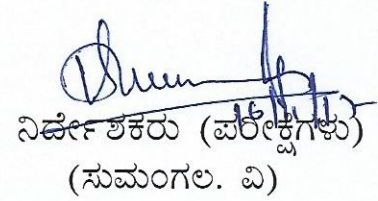 ನಿರ್ದೇಶಕರು (ಪರೀಕ್ಷೆಗಳು)
(ಸುಮಂಗಲ. ವಿ)